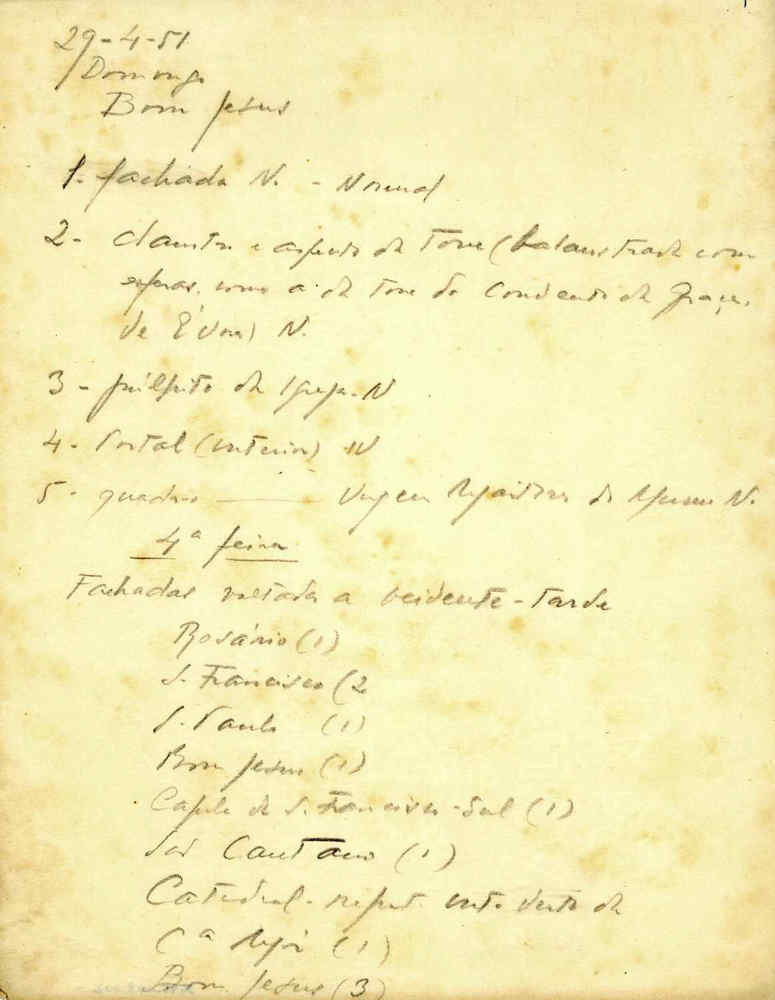 29-4-51
Domingo
Bom Jesus
1. fachada N. - Normal
2- claustro e aspecto da Torre (balaustrada com
esferas, como a da torre do Convento da Graça,
de Évora) N.
3 - púlpito da Igreja - N
4 - Portal (interior) N
5 - quadro — Virgem do Menino N.
4ª feira
Fachadas voltadas a ocidente - tarde
Rosário (1)
S. Francisco (2
S. Paulo (1)
Bom Jesus (1)
Capela de S. Francisco - Sul (1)
São Caetano (1)
Catedral - da
Cª Mór (1)
Bom Jesus (3)